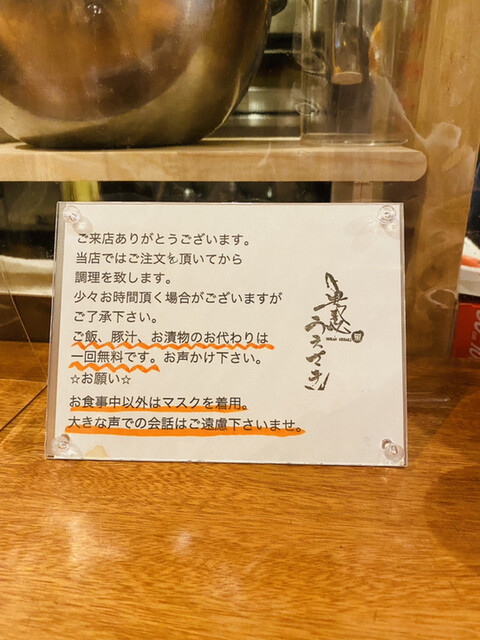 ご来店ありがとうございます。
当店ではご注文を頂いてから
調理を致します。
少々お時間頂く場合がございますが
ご了承下さい。
ご飯、豚汁、お漬物のお代わりは
一回無料です。お声かけ下さい。
☆お願い☆
お食事中以外はマスクを着用。
大きな声での会話はご遠慮下さいませ。
うえさき